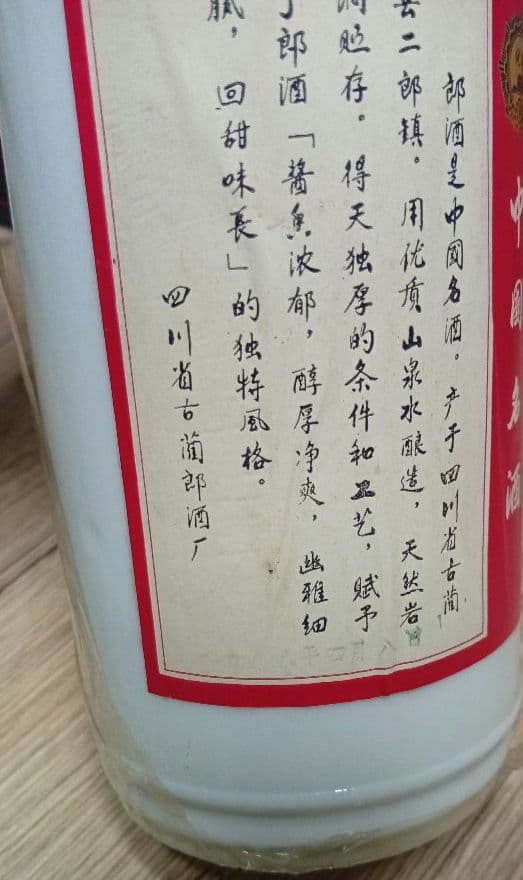 中國名酒
郎酒是中國名酒。产于四川省古蔺
县二郎镇。用优质山泉水酿造，天然岩
洞贮存。得天独厚的条件和工艺，赋予
了郎酒「醬香浓郁，醇厚净爽，幽雅细
腻，回甜味長」的独特风格。
四川省古蔺郎酒厂